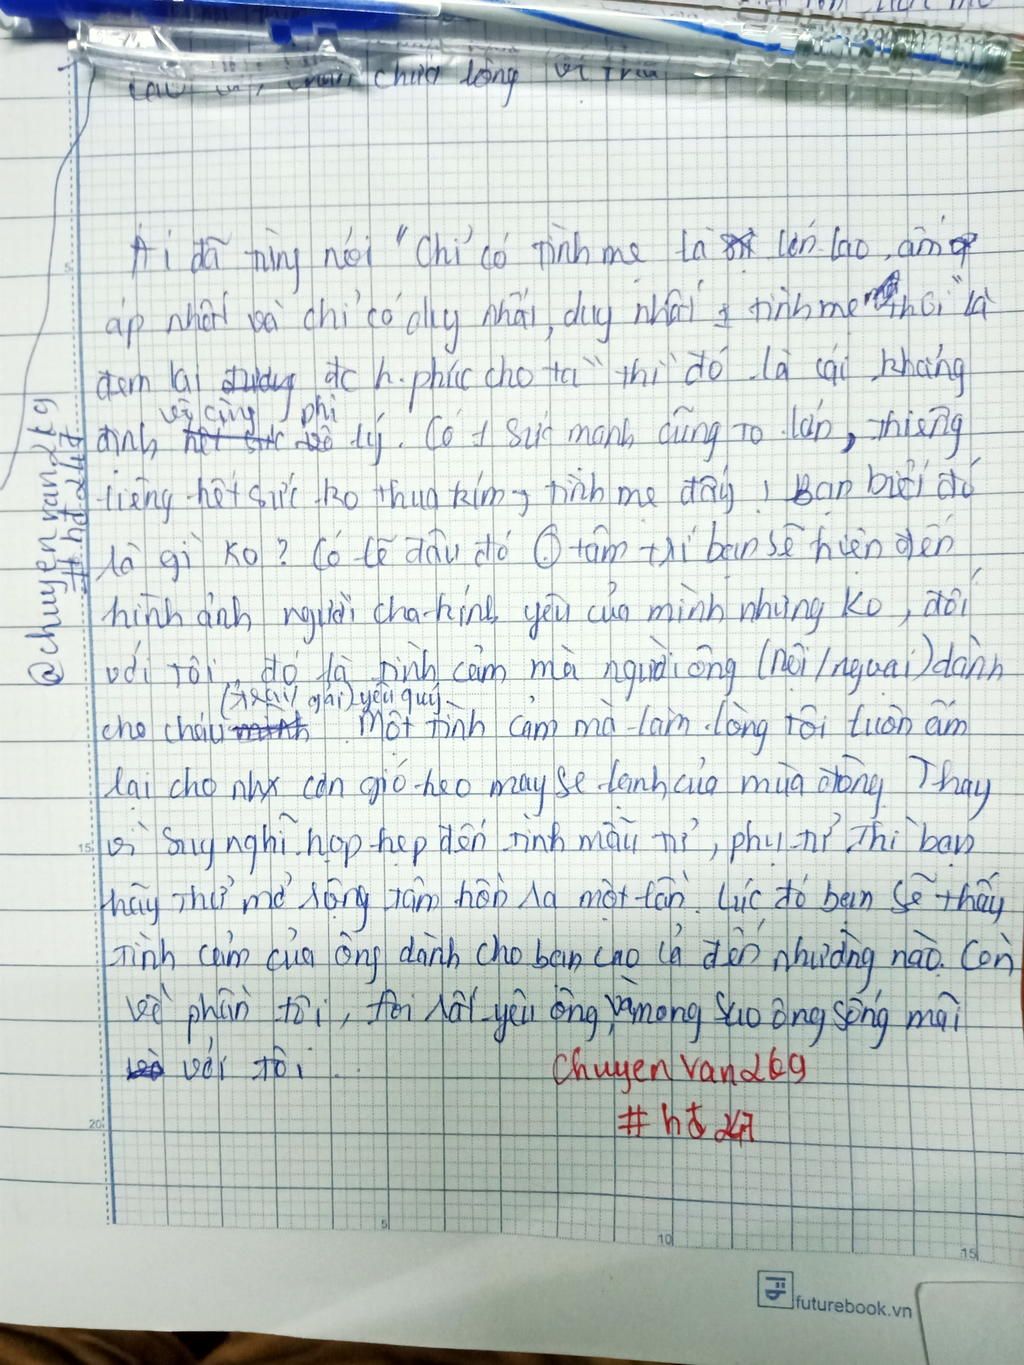 chưa lòng vì
Ai đã từng nói "Chỉ có tình mẹ là lớn lao, ấm
áp nhất và chỉ có duy nhất, duy nhất tình mẹ thôi" là
đem lại đc h.phúc cho ta" thì đó là cái khẳng
vô cùng phi
định lý. Có 1 sức mạnh cũng to lớn, thiêng
liêng hết sức ko thua kém tình mẹ đấy, Bạn biết đó
là gì ko? Có lẽ đâu đó tâm trí bạn sẽ hiện đến
hình ảnh người cha kính yêu của mình nhưng ko, đối
với tôi, đó là tình cảm mà người ông (nội/ngoại) dành
(trai/gái) yêu quý.
cho cháu Một tình cảm mà làm lòng tôi luôn ấm
lại cho như cơn gió heo may se lạnh của mùa đông Thay
vì suy nghĩ hẹp hẹp đến tình mẫu tử, phụ tử thì bạn
hãy thử mở rộng tâm hồn ra một lần. Lúc đó bạn sẽ thấy
tình cảm của ông dành cho bạn cao cả đến nhường nào. Còn
về phần tôi, tôi rất yêu ông, và mong sao ông sống mãi
với tôi.
Chuyenvan269
#hđ247
@chuyenvan269
#hđ247
5
15
20
5
10
15
futurebook.vn